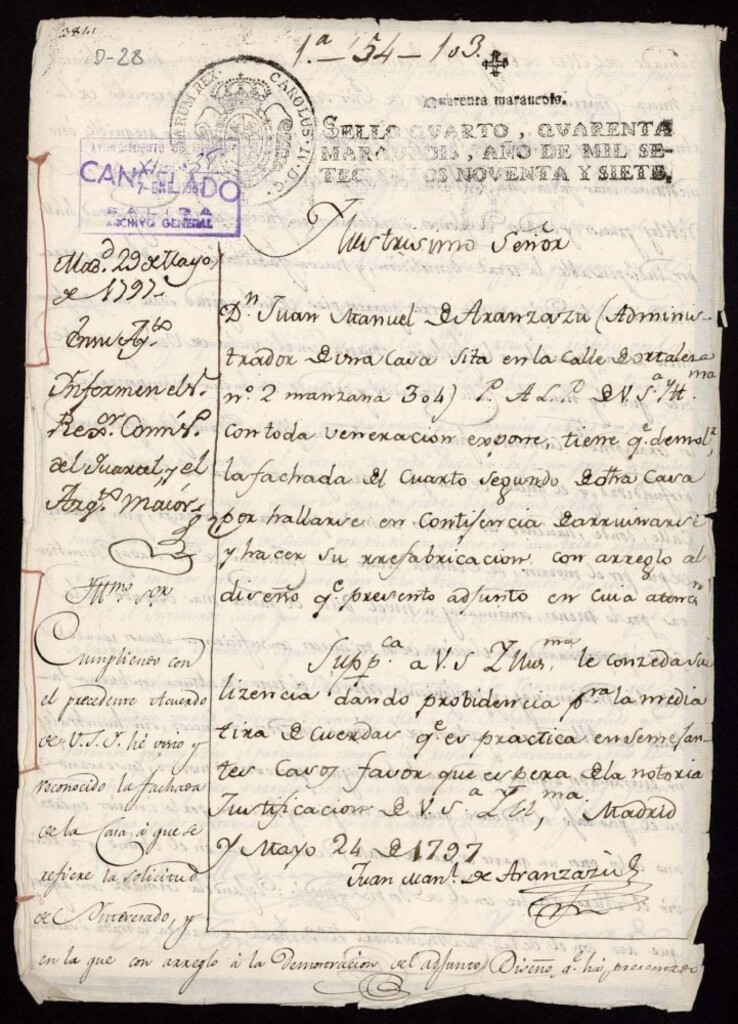 D-28
1.ª - 54 - 103.
Quarenta maravedis.
SELLO QVARTO, QVARENTA
MARAVEDIS, AÑO DE MIL SE-
TECIENTOS NOVENTA Y SIETE.
CAROLUS·IV·D·G·
ARUM·REX·
AYUNTAMIENTO
CANCELADO
SALIDA
ARCHIVO GENERAL
Yllustrisimo Señor
Mad.d 29 de Mayo
de 1797.
Informen el S.r
Rex.or Comis.o
del Quartel, y el
Arq.to Maior
D.n Juan Manuel de Aranzazu (Adminis-
trador de una Casa sita en la Calle de ortaleza
nº. 2 manzana 304) P. A L. P. de V. S.ª Y Ill.ma
con toda veneracion expone, tiene q.e demol.r
la fachada del Cuarto segundo de dtha Casa
por hallarse en Contisencia de arruinarse
y hacer su rrefabricacion con arreglo al
diseño q.e presento adjunto en cuia atenc.n
Supp.ca a V. S Yllus.ma le conzeda su
lizencia dando probidencia p.ra la media
tira de Cuerdas q.e es practica en semejan-
tes Casos favor que espera de la notoria
Justificacion de V. S.ª Ill.ma. Madrid
y Mayo 24 de 1797
Juan Man.l de Aranzazu
Ill.mo S.or
Cumpliendo con
el precedente Acuerdo
de V.S.Y. hé visto y
reconocido la fachada
de la Casa á que se
refiere la solicitud
de Ynteresado, y
en la que con arreglo á la Demostracion del adjunto Diseño q.e ha presentado